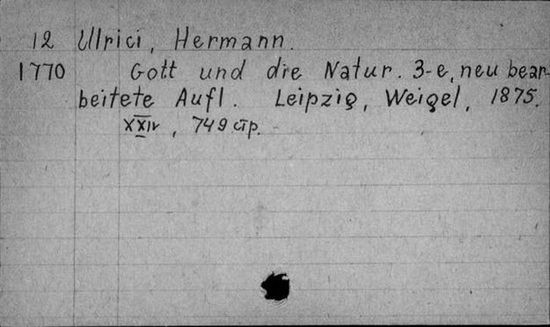 12 Ulrici, Hermann.
1770 Gott und die Natur. 3-e, neu bear-
beitete Aufl. Leipzig, Weigel, 1875.
XXIV, 749 стр.